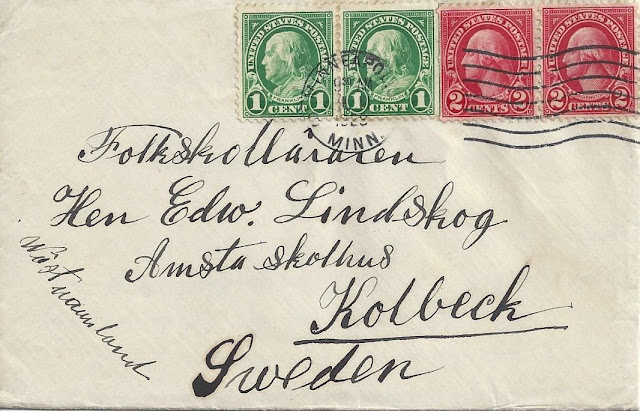 UNITED STATES POSTAGE UNITED STATES POSTAGE UNITED STATES POSTAGE UNITED STATES POSTAGE
FRANKLIN FRANKLIN
1 CENT 1 1 CENT 1 2 CENTS 2 2 2
MINN.
Folkskolläraren
Herr Edw. Lindskog
Amsta skolhus
Kolbeck
Sweden